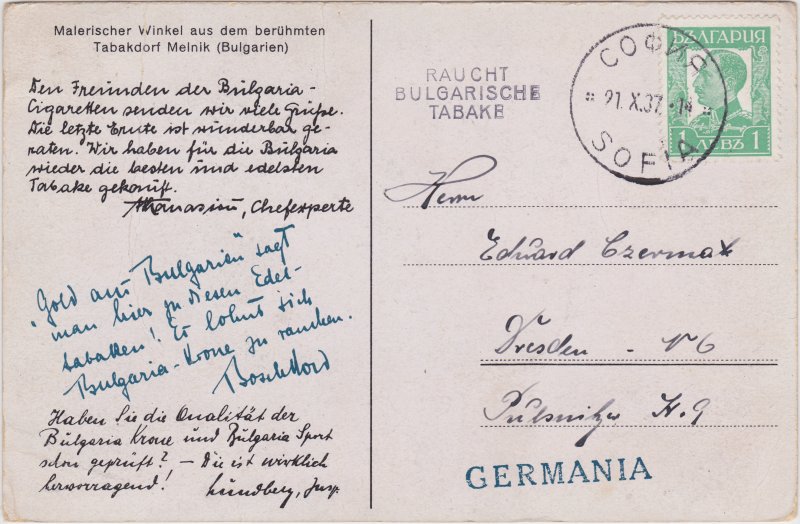 Malerischer Winkel aus dem berühmten
Tabakdorf Melnik (Bulgarien)
Den Freunden der Bulgaria-
Cigaretten senden wir viele Grüße.
Die letzte Ernte ist wunderbar ge-
raten. Wir haben für die Bulgaria
wieder die besten und edelsten
Tabake gekauft.
Athanasiu, Chefexperte
"Gold aus Bulgarien" sagt
man hier zu diesen Edel-
tabaken! Es lohnt sich
Bulgaria-Krone zu rauchen.
Haben Sie die Qualität der
Bulgaria Krone und Bulgaria Sport
schon geprüft? – Die ist wirklich
hervorragend! Lundberg, Insp.
RAUCHT
BULGARISCHE
TABAKE
СОФИЯ
21.X.37.14
SOFIA
БЪЛГАРИЯ
1 ЛЕВЪ 1
Herrn
Eduard Czermak
Dresden - N6
Pulsnitzer 9
GERMANIA